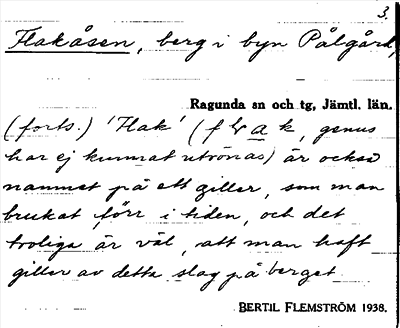 3.
Flakåsen, berg i byn Pålgård,
Ragunda sn och tg, Jämtl. län.
(forts.) 'Flak' (f l a k, genus
har ej kunnat utrönas) är också
namnet på ett giller, som man
brukat förr i tiden, och det
troliga är väl, att man haft
giller av detta slag på berget.
BERTIL FLEMSTRÖM 1938.